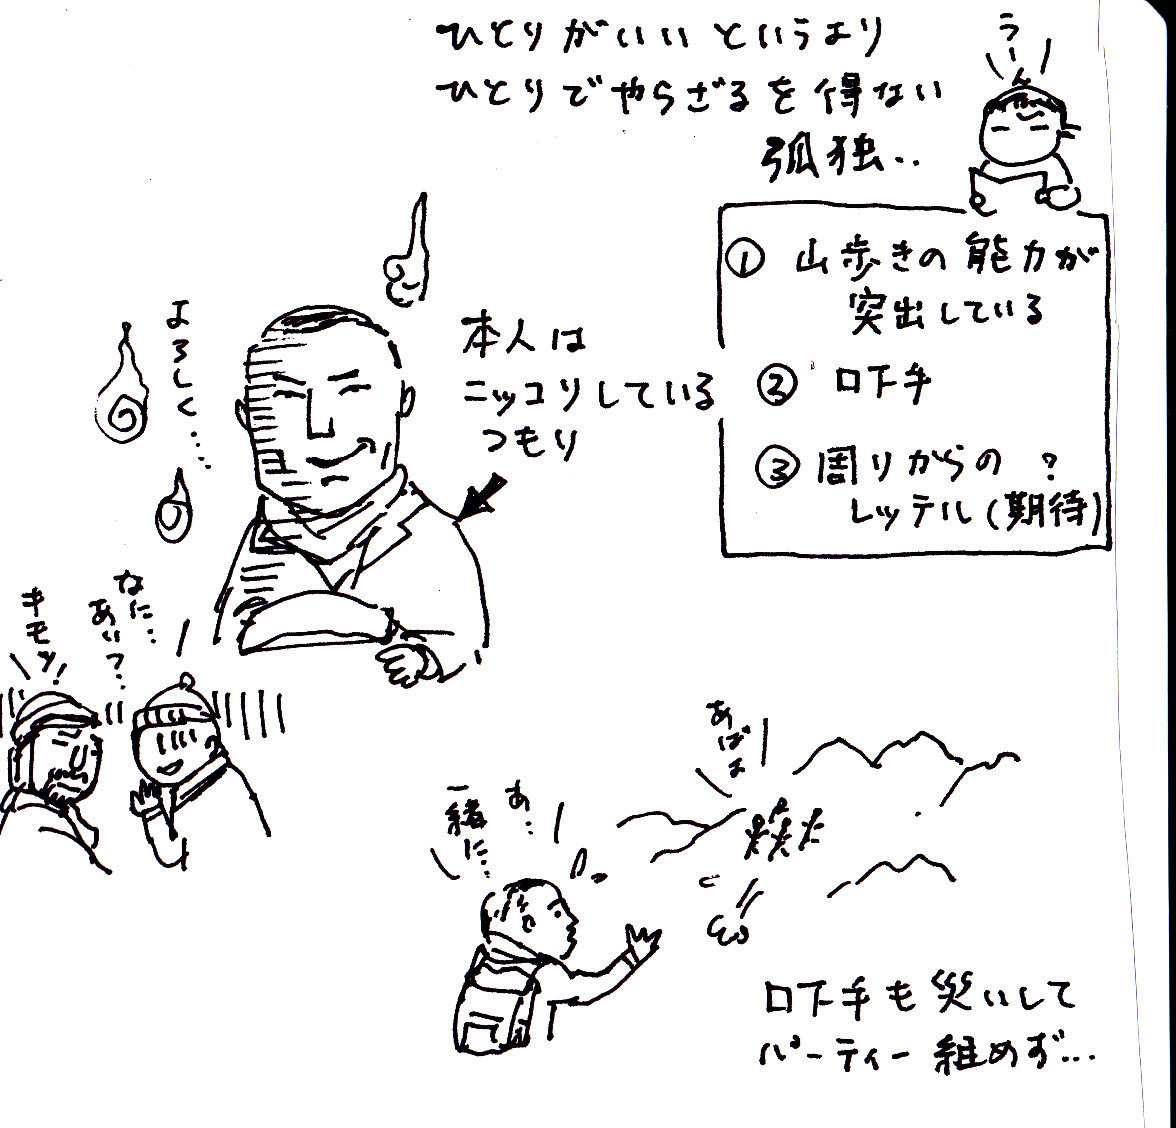 ひとりがいいというより
ひとりでやらざるを得ない
孤独..
うーん
① 山歩きの能力が
突出している
② 口下手
③ 周りからの ?
レッテル(期待)
本人は
ニッコリしている
つもり
よろしく.....
なに...
あいつ..
キモッ!
あばよ
あ...
一緒に...
口下手も災いして
パーティー組めず...